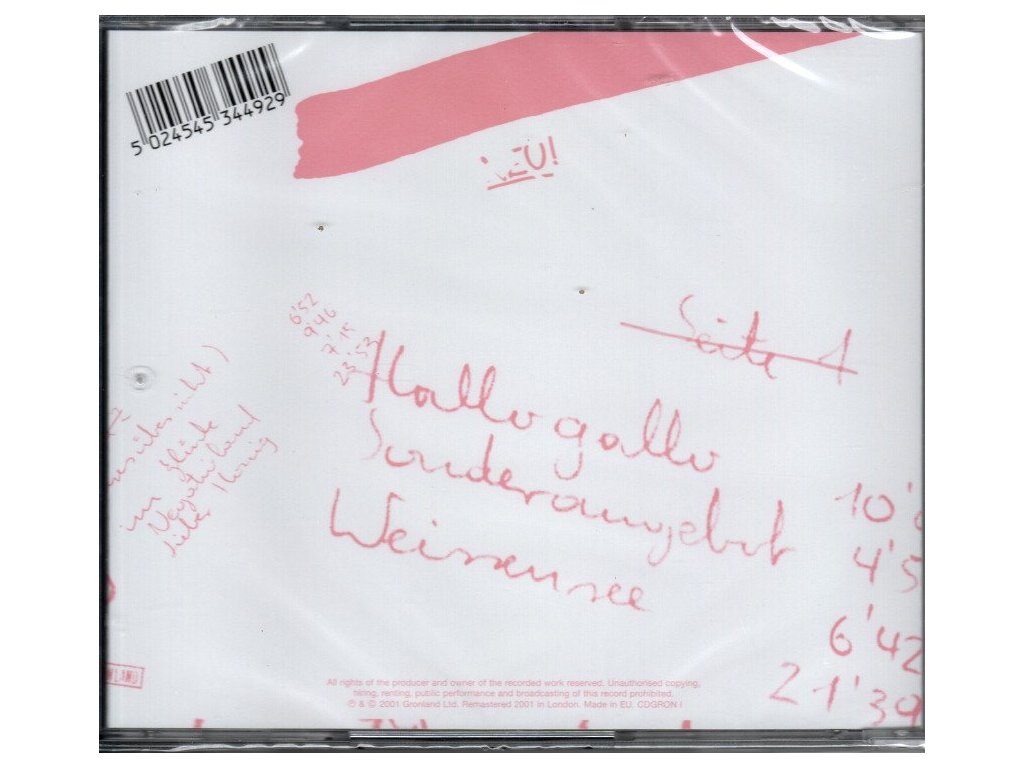 5 024545 344929
NEU!
Seite 1
6'52
9'46
7'15
23'53
Hallogallo
Sonderangebot
Weissensee
10'
4'5
6'42
21'39
im Glück
Negativland
Lieber Honig
All rights of the producer and owner of the recorded work reserved. Unauthorised copying,
hiring, renting, public performance and broadcasting of this record prohibited.
℗ & © 2001 Gronland Ltd. Remastered 2001 in London. Made in EU. CDGRON I